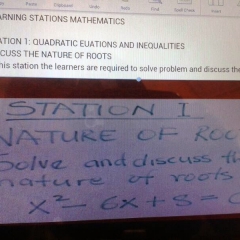 ARNING STATIONS MATHEMATICS
ATION 1: QUADRATIC EUATIONS AND INEQUALITIES
CUSS THE NATURE OF ROOTS
his station the learners are required to solve problem and discuss the
STATION I
NATURE OF ROO
Solve and discuss th
nature of roots
x² - 6x + 8 = 0